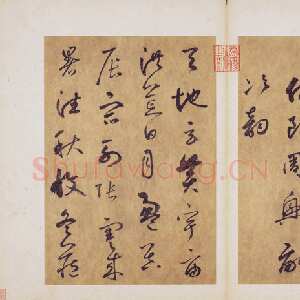 侍郎周興嗣
次韻
天地玄黃宇宙
洪荒日月盈昃
辰宿列張寒來
暑往秋收冬藏
Shufawang.CN